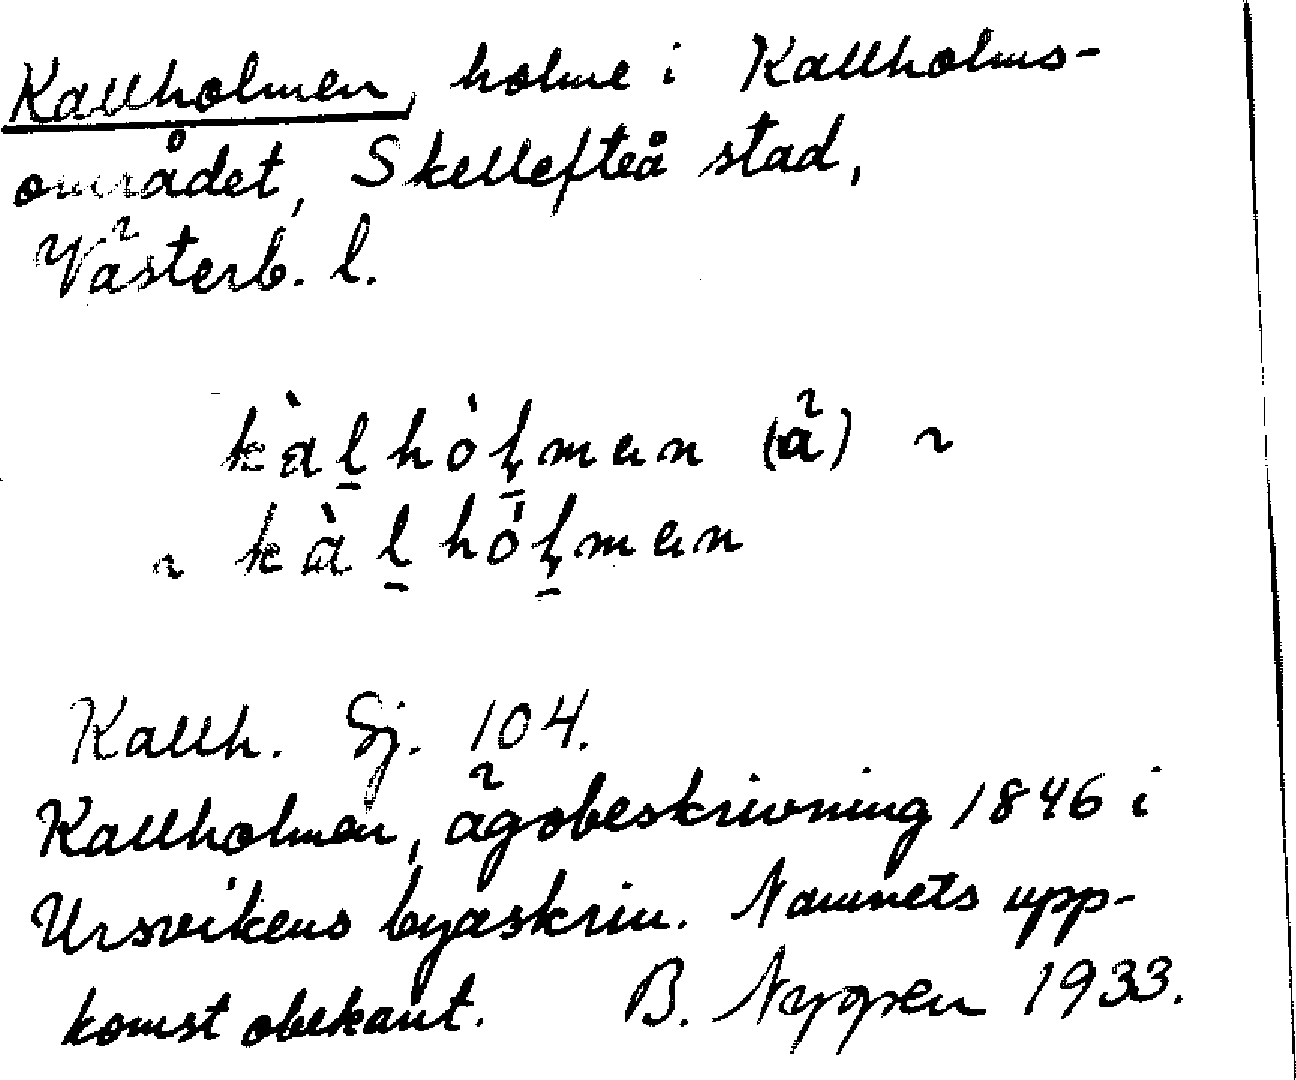 Kallholmen, holme i Kallholms-
området, Skellefteå stad,
Västerb. l.
kàl̠hòl̠man (ä) ~
~ kàl̠hól̠man
Kallh. Sj. 104.
Kallholmen, ägobeskrivning 1846 i
Ursvikens byaskrin. Namnets upp-
komst obekant. B. Nygren 1933.